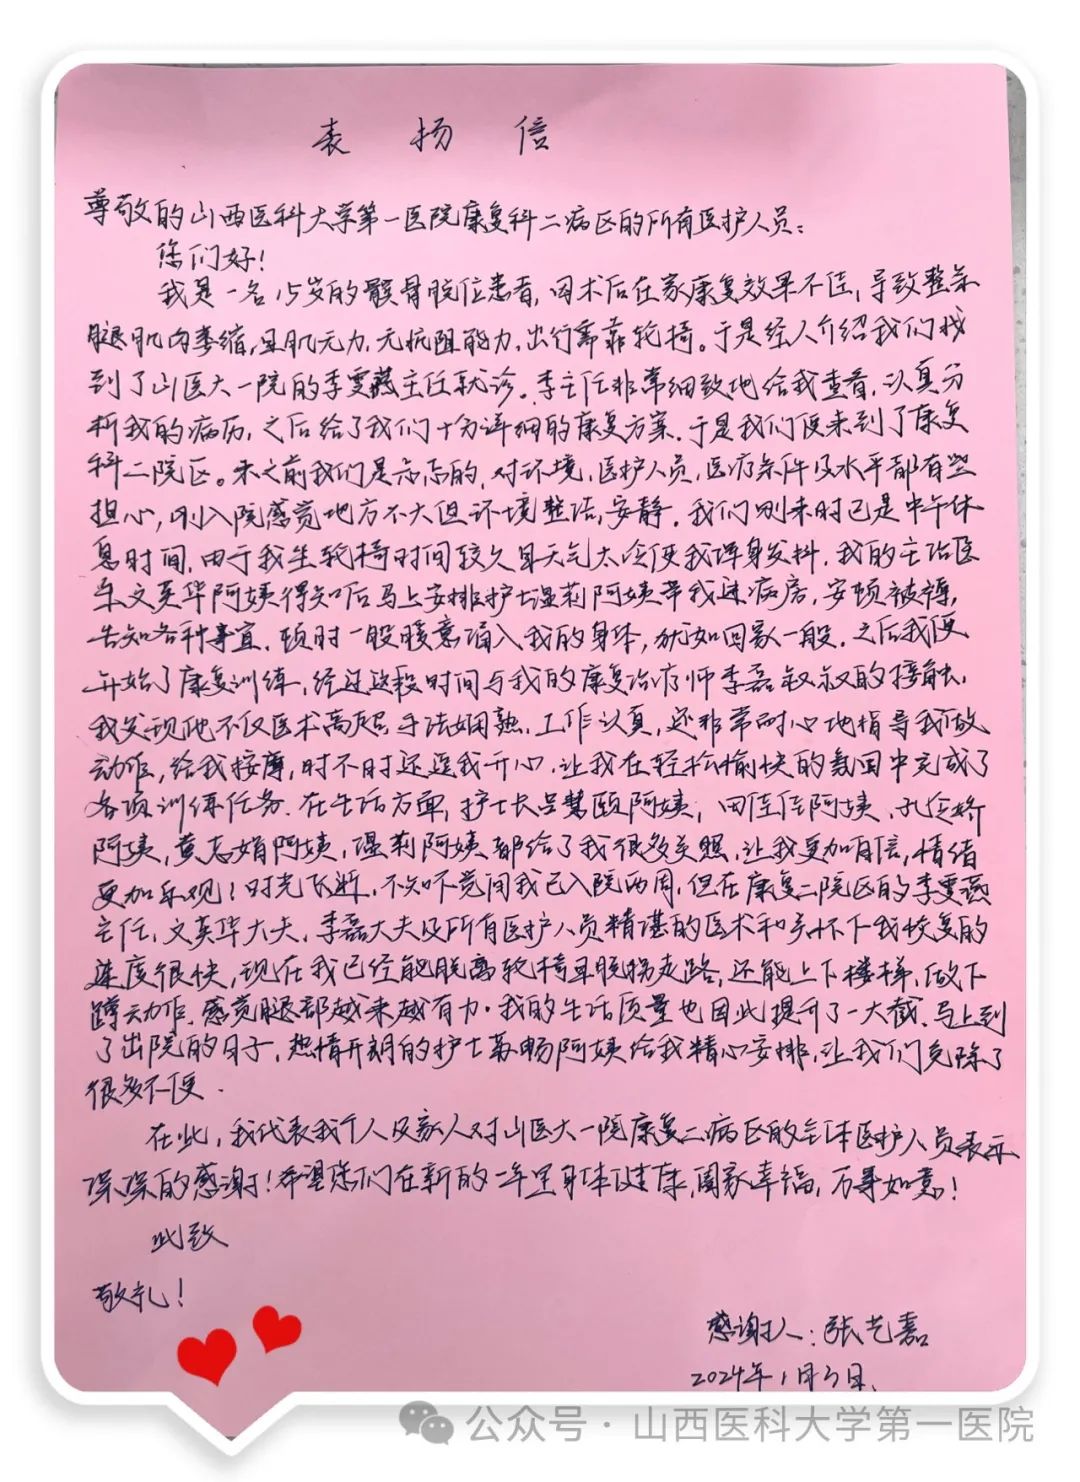 表扬信
尊敬的山西医科大学第一医院康复科二病区的所有医护人员：
您们好！
我是一名15岁的髌骨脱位患者，因术后在家康复效果不佳，导致整条
腿肌肉萎缩，且肌无力，无抗阻能力，出行需靠轮椅。于是经人介绍我们找
到了山医大一院的李雯燕主任就诊。李主任非常细致地给我查看，认真分
析我的病历，之后给了我们十分详细的康复方案，于是我们便来到了康复
科二院区。来之前我们是忐忑的，对环境，医护人员，医疗条件及水平都有些
担心，刚入院感觉地方不大但环境整洁，安静。我们刚来时已是中午休
息时间，由于我坐轮椅时间较久且天气太冷使我浑身发抖，我的主治医
生文英华阿姨得知后马上安排护士温莉阿姨带我进病房，安顿被褥，
告知各种事宜，顿时一股暖意涌入我的身体，犹如回家一般。之后我便
开始了康复训练，经过这段时间与我的康复治疗师李磊叔叔的接触，
我发现他不仅医术高超，手法娴熟，工作认真，还非常耐心地指导我做
动作，给我按摩，时不时还逗我开心，让我在轻松愉快的氛围中完成了
各项训练任务。在生活方面，护士长吕慧颐阿姨，田佳佳阿姨，孔金娇
阿姨，黄志娟阿姨，温莉阿姨都给了我很多关照，让我更加自信，情绪
更加乐观！时光飞逝，不知不觉间我已入院两周，但在康复二院区的李雯燕
主任，文英华大夫，李磊大夫及所有医护人员精湛的医术和关怀下我恢复的
速度很快，现在我已经能脱离轮椅且脱拐走路，还能上下楼梯，做下
蹲动作，感觉腿部越来越有力。我的生活质量也因此提升了一大截，马上到
了出院的日子，热情开朗的护士苏畅阿姨给我精心安排，让我们免除了
很多不便。
在此，我代表我个人及家人对山医大一院康复二病区的全体医护人员表示
深深的感谢！希望您们在新的一年里身体健康，阖家幸福，万事如意！
此致
敬礼！
感谢人：张艺嘉
2024年1月3日，
公众号·山西医科大学第一医院